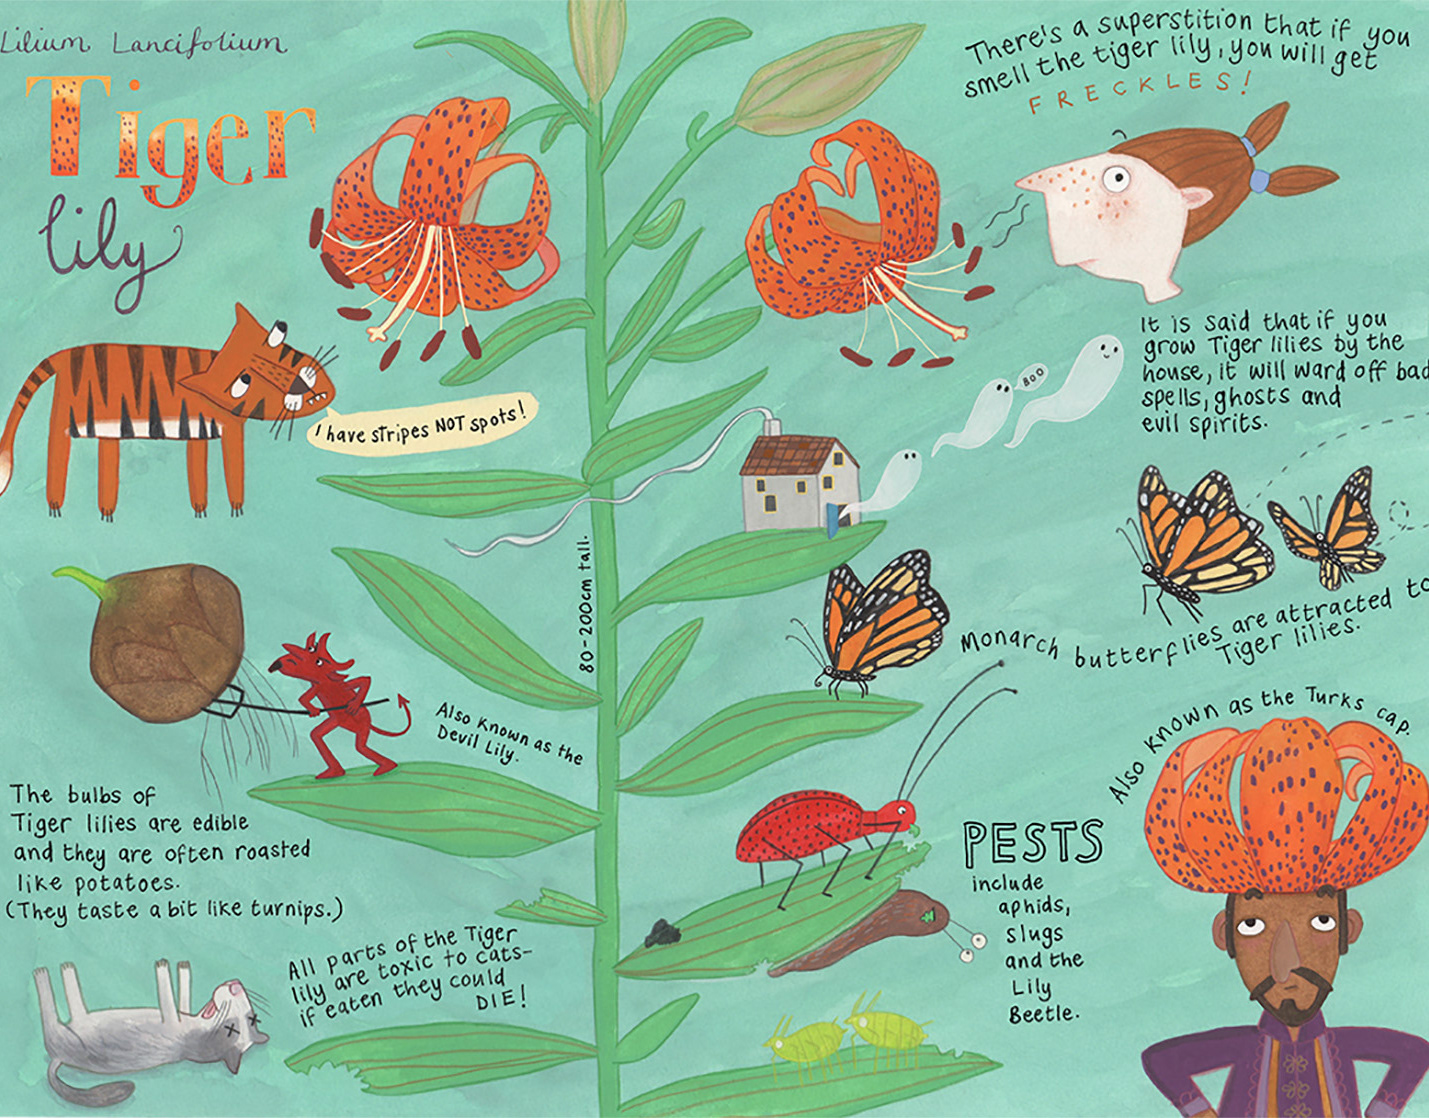 Lilium Lancifolium
Tiger
lily
There's a superstition that if you
smell the tiger lily, you will get
FRECKLES!
I have stripes NOT spots!
BOO
It is said that if you
grow Tiger lilies by the
house, it will ward off bad
spells, ghosts and
evil spirits.
80-200cm tall.
Monarch butterflies are attracted to
Tiger lilies.
Also known as the
Devil Lily.
The bulbs of
Tiger lilies are edible
and they are often roasted
like potatoes.
(They taste a bit like turnips.)
All parts of the Tiger
lily are toxic to cats-
if eaten they could
DIE!
PESTS
include
aphids,
slugs
and the
Lily
Beetle.
Also known as the Turks cap.